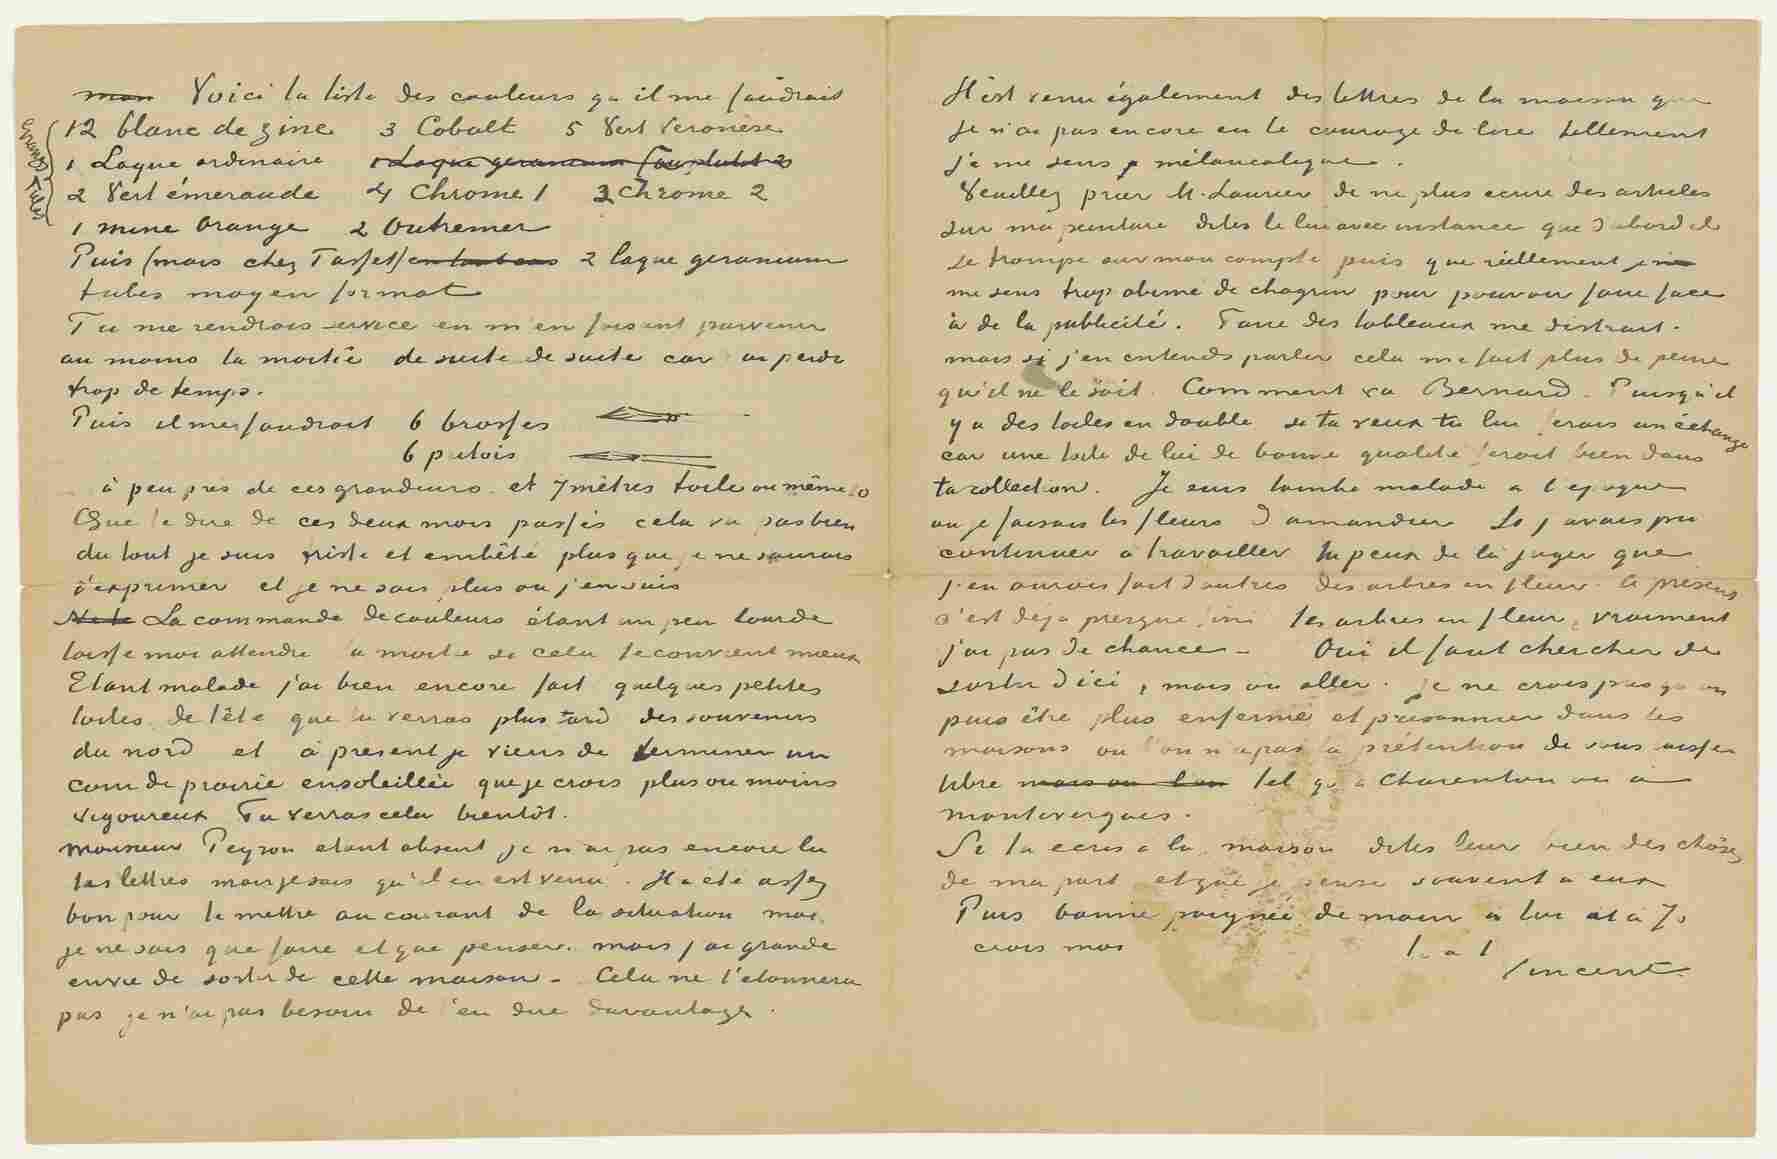 mon Voici la liste des couleurs qu'il me faudrait
grands tubes
12 blanc de zinc 3 Cobalt 5 Vert Veronèse
1 Laque ordinaire 1 Laque geranium (ou plutot 2
2 Vert émeraude 4 Chrome 1 3 Chrome 2
1 mine Orange 2 Outremer
Puis (mais chez Tasset) en tout cas 2 laque geranium
tubes moyen format
Tu me rendrais service en m'en faisant parvenir
au moins la moitié de suite de suite car j'ai perdu
trop de temps.
Puis il me faudrait 6 brosses
6 putois
à peu près de ces grandeurs et 7 mètres toile ou même 10
Que te dire de ces deux mois passés cela va pas bien
du tout je suis triste et embêté plus que je ne saurais
t'exprimer et je ne sais plus où j'en suis
La commande de couleurs étant un peu lourde
laisse moi attendre la moitié si cela te convient mieux
Etant malade j'ai bien encore fait quelques petites
toiles de tête que tu verras plus tard des souvenirs
du nord et à présent je viens de terminer un
coin de prairie ensoleillée que je crois plus ou moins
vigoureux Tu verras cela bientôt.
Monsieur Peyron etant absent je n'ai pas encore lu
tes lettres mais je sais qu'il en est venu. Il a été assez
bon pour te mettre au courant de la situation moi
je ne sais que faire et que penser. mais j'ai grande
envie de sortir de cette maison – Cela ne t'etonnera
pas je n'ai pas besoin de t'en dire davantage.
Il est venu également des lettres de la maison que
je n'ai pas encore eu le courage de lire tellement
je me sens mélancolique.
Veuillez prier M. Aurier de ne plus ecrire des articles
sur ma peinture dites le lui avec instance que d'abord il
se trompe sur mon compte puis que réellement je
me sens trop abimé de chagrin pour pouvoir faire face
à de la publicité. Faire des tableaux me distrait.
mais si j'en entends parler cela me fait plus de peine
qu'il ne le sait. Comment va Bernard – Puisqu'il
y a des toiles en double si tu veux tu lui ferais un échange
car une toile de lui de bonne qualité ferait bien dans
ta collection. Je suis tombé malade à l'epoque
ou je faisais les fleurs d'amandier Si j'avais pu
continuer à travailler tu peux de là juger que
j'en aurais fait d'autres des arbres en fleur. A présent
c'est déjà presque fini les arbres en fleur, vraiment
j'ai pas de chance – Oui il faut chercher de
sortir d'ici, mais ou aller. Je ne crois pas qu'on
puis être plus enfermé et prisonnier dans les
maisons où l'on n'a pas la prétention de vous laisser
libre mais ou l'on tel qu'à Charenton ou à
montevergues.
Si tu ecris à la maison dites leur bien des chôses
de ma part et que je pense souvent à eux
Puis bonne poignée de main à toi et à Jo
crois moi t. à t
Vincent